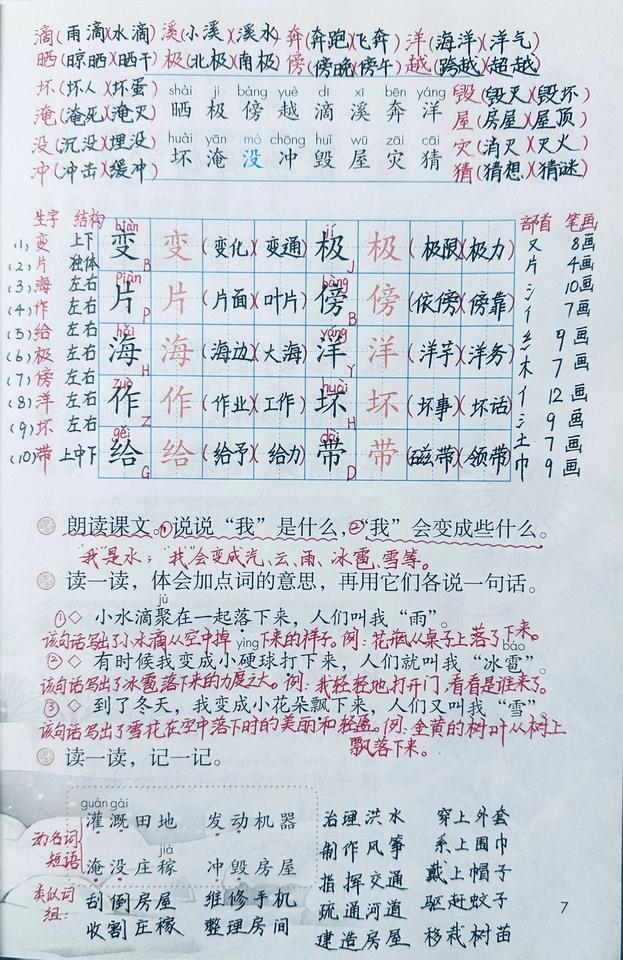 滴(雨滴)(水滴) 溪(小溪)(溪水) 奔(奔跑)(飞奔) 洋(海洋)(洋气)
晒(晾晒)(晒干) 极(北极)(南极) 傍(傍晚)(傍午) 越(跨越)(超越)
坏(坏人)(坏蛋) shài jí bàng yuè dī xī bēn yáng 毁(毁灭)(毁坏)
淹(淹死)(淹灭) 晒 极 傍 越 滴 溪 奔 洋 屋(房屋)(屋顶)
没(沉没)(埋没) huài yān mò chōng huǐ wū zāi cāi 灾(消灭)(灭火)
冲(冲击)(缓冲) 坏 淹 没 冲 毁 屋 灾 猜 猜(猜想)(猜谜)
生字 结构 部首 笔画
(1)变 上下 biàn 变 B 变 (变化)(变通) jí 极 J 极 (极限)(极力) 又 8画
(2)片 独体 片 4画
(3)海 左右 piàn 片 P 片 (片面)(叶片) bàng 傍 B 傍 (依傍)(傍靠) 氵 10画
(4)作 左右 亻 7画
(5)给 左右 hǎi 海 H 海 (海边)(大海) yáng 洋 Y 洋 (洋芋)(洋务) 纟 9画
(6)极 左右 木 7画
(7)傍 左右 zuò 作 Z 作 (作业)(工作) huài 坏 H 坏 (坏事)(坏话) 亻 12画
(8)洋 左右 氵 9画
(9)坏 左右 土 7画
(10)带 上中下 gěi 给 G 给 (给予)(给力) dài 带 D 带 (磁带)(领带) 巾 9画
朗读课文。①说说“我”是什么，②“我”会变成些什么。
“我”是水；“我”会变成汽、云、雨、冰雹、雪等。
读一读，体会加点词的意思，再用它们各说一句话。
jù
①◇ 小水滴聚在一起落下来，人们叫我“雨”。
该句话写出了小水滴从空中掉下来的样子。例：花瓶从桌子上落了下来。
yìng báo
②◇ 有时候我变成小硬球打下来，人们就叫我“冰雹”。
该句话写出了冰雹落下来的力度之大。例：我轻轻地打开门，看看是谁来了。
③◇ 到了冬天，我变成小花朵飘下来，人们又叫我“雪”
该句话写出了雪花在空中落下时的美丽和轻盈。例：金黄的树叶从树上
飘落下来。
读一读，记一记。
guàn gài
灌溉田地 发动机器 治理洪水 穿上外套
动名词 制作风筝 系上围巾
短语 jià
淹没庄稼 冲毁房屋 指挥交通 戴上帽子
类似词 刮倒房屋 维修手机 疏通河道 驱赶蚊子
组： 收割庄稼 整理房间 建造房屋 移栽树苗
7